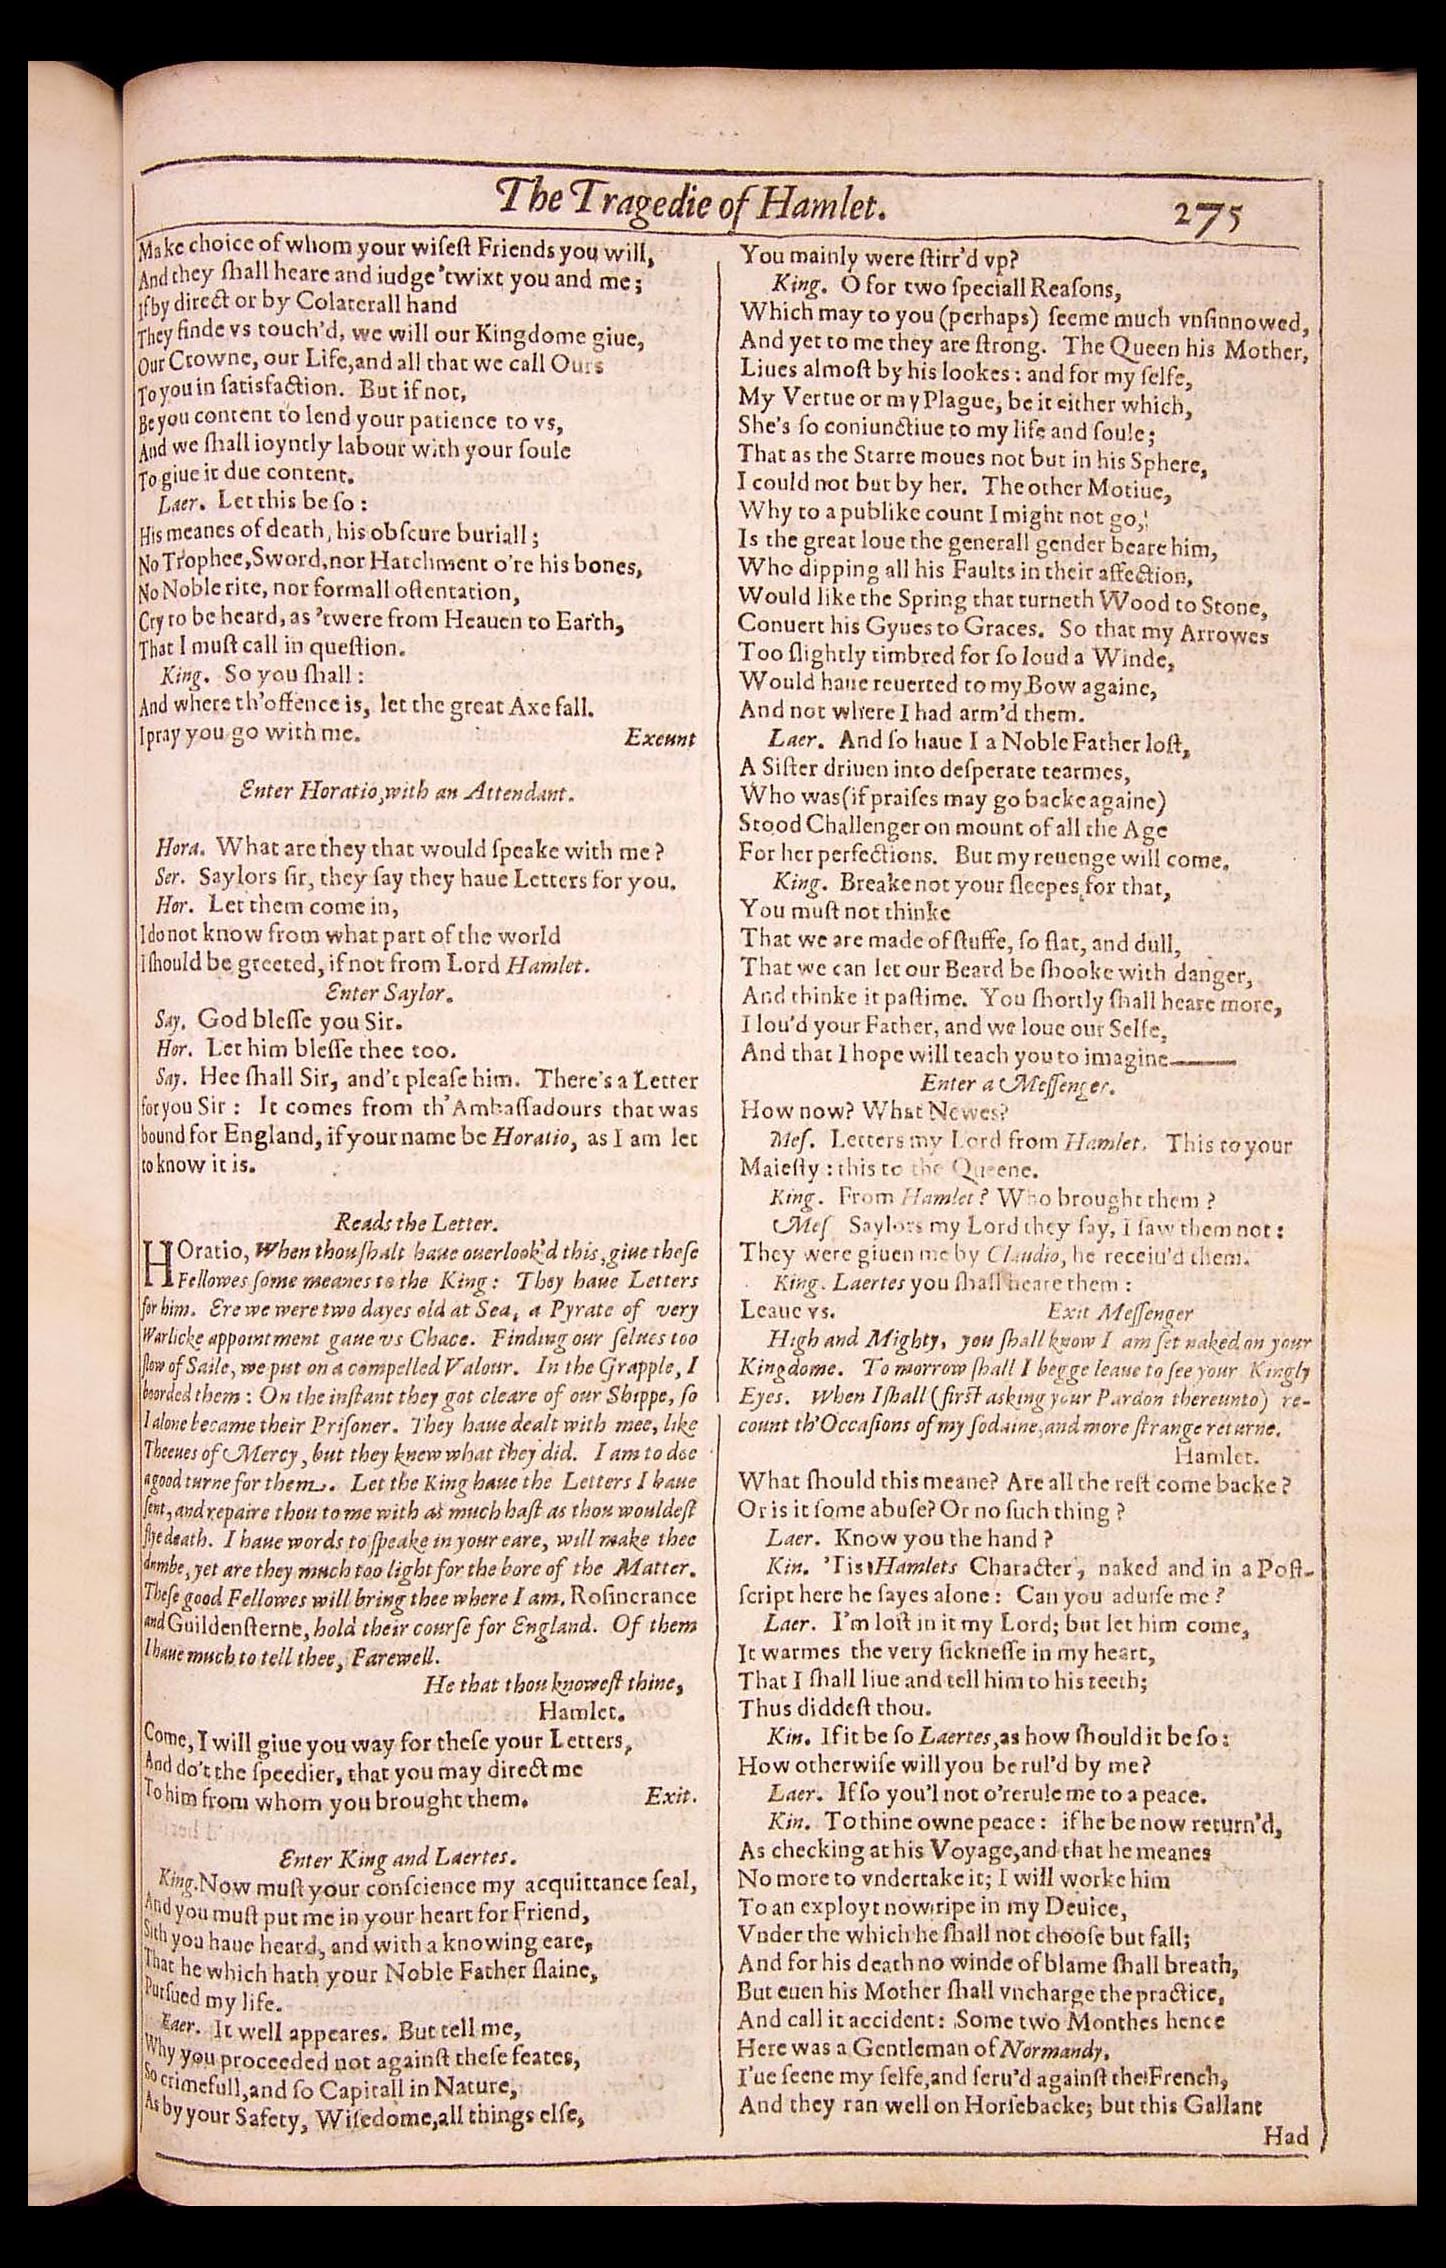 The Tragedie of Hamlet.
275
Make choice of whom your wiſeſt Friends you will,
And they ſhall heare and iudge 'twixt you and me;
If by direct or by Colaterall hand
They finde vs touch'd, we will our Kingdome giue,
Our Crowne, our Life, and all that we call Ours
To you in ſatisfaction. But if not,
Be you content to lend your patience to vs,
And we ſhall ioyntly labour with your ſoule
To giue it due content.
Laer. Let this be ſo:
His meanes of death, his obſcure buriall;
No Trophee, Sword, nor Hatchment o're his bones,
No Noble rite, nor formall oſtentation,
Cry to be heard, as 'twere from Heauen to Earth,
That I muſt call in queſtion.
King. So you ſhall:
And where th'offence is, let the great Axe fall.
I pray you go with me. Exeunt
Enter Horatio, with an Attendant.
Hora. What are they that would ſpeake with me?
Ser. Saylors ſir, they ſay they haue Letters for you.
Hor. Let them come in,
I do not know from what part of the world
I ſhould be greeted, if not from Lord Hamlet.
Enter Saylor.
Say. God bleſſe you Sir.
Hor. Let him bleſſe thee too.
Say. Hee ſhall Sir, and't pleaſe him. There's a Letter
for you Sir: It comes from th'Ambaſſadours that was
bound for England, if your name be Horatio, as I am let
to know it is.
Reads the Letter.
HOratio, When thou ſhalt haue ouerlook'd this, giue theſe
Fellowes ſome meanes to the King: They haue Letters
for him. Ere we were two dayes old at Sea, a Pyrate of very
Warlicke appointment gaue vs Chace. Finding our ſelues too
ſlow of Saile, we put on a compelled Valour. In the Grapple, I
boorded them: On the inſtant they got cleare of our Shippe, ſo
I alone became their Priſoner. They haue dealt with mee, like
Theeues of Mercy, but they knew what they did. I am to doe
a good turne for them. Let the King haue the Letters I haue
ſent, and repaire thou to me with as much haſt as thou wouldeſt
flye death. I haue words to ſpeake in your eare, will make thee
dumbe, yet are they much too light for the bore of the Matter.
Theſe good Fellowes will bring thee where I am. Roſincrance
and Guildenſterne, hold their courſe for England. Of them
I haue much to tell thee, Farewell.
He that thou knoweſt thine,
Hamlet.
Come, I will giue you way for theſe your Letters,
And do't the ſpeedier, that you may direct me
To him from whom you brought them. Exit.
Enter King and Laertes.
King. Now muſt your conſcience my acquittance ſeal,
And you muſt put me in your heart for Friend,
Sith you haue heard, and with a knowing eare,
That he which hath your Noble Father ſlaine,
Purſued my life.
Laer. It well appeares. But tell me,
Why you proceeded not againſt theſe feates,
So crimefull, and ſo Capitall in Nature,
As by your Safety, Wiſedome, all things elſe,
You mainly were ſtirr'd vp?
King. O for two ſpeciall Reaſons,
Which may to you (perhaps) ſeeme much vnſinnowed,
And yet to me they are ſtrong. The Queen his Mother,
Liues almoſt by his lookes: and for my ſelfe,
My Vertue or my Plague, be it either which,
She's ſo coniunctiue to my life and ſoule;
That as the Starre moues not but in his Sphere,
I could not but by her. The other Motiue,
Why to a publike count I might not go,
Is the great loue the generall gender beare him,
Who dipping all his Faults in their affection,
Would like the Spring that turneth Wood to Stone,
Conuert his Gyues to Graces. So that my Arrowes
Too ſlightly timbred for ſo loud a Winde,
Would haue reuerted to my Bow againe,
And not where I had arm'd them.
Laer. And ſo haue I a Noble Father loſt,
A Siſter driuen into deſperate tearmes,
Who was (if praiſes may go backe againe)
Stood Challenger on mount of all the Age
For her perfections. But my reuenge will come.
King. Breake not your ſleepes for that,
You muſt not thinke
That we are made of ſtuffe, ſo flat, and dull,
That we can let our Beard be ſhooke with danger,
And thinke it paſtime. You ſhortly ſhall heare more,
I lou'd your Father, and we loue our Selfe,
And that I hope will teach you to imagine——
Enter a Meſſenger.
How now? What Newes?
Meſ. Letters my Lord from Hamlet. This to your
Maieſty: this to the Queene.
King. From Hamlet? Who brought them?
Meſ Saylors my Lord they ſay, I ſaw them not:
They were giuen me by Claudio, he receiu'd them.
King. Laertes you ſhall heare them:
Leaue vs. Exit Meſſenger
High and Mighty, you ſhall know I am ſet naked on your
Kingdome. To morrow ſhall I begge leaue to ſee your Kingly
Eyes. When I ſhall (firſt asking your Pardon thereunto) re-
count th'Occaſions of my ſodaine, and more ſtrange returne.
Hamlet.
What ſhould this meane? Are all the reſt come backe?
Or is it ſome abuſe? Or no ſuch thing?
Laer. Know you the hand?
Kin. 'Tis Hamlets Character, naked and in a Poſt-
ſcript here he ſayes alone: Can you aduiſe me?
Laer. I'm loſt in it my Lord; but let him come,
It warmes the very ſickneſſe in my heart,
That I ſhall liue and tell him to his teeth;
Thus diddeſt thou.
Kin. If it be ſo Laertes, as how ſhould it be ſo:
How otherwiſe will you be rul'd by me?
Laer. If ſo you'l not o'rerule me to a peace.
Kin. To thine owne peace: if he be now return'd,
As checking at his Voyage, and that he meanes
No more to vndertake it; I will worke him
To an exployt now ripe in my Deuice,
Vnder the which he ſhall not chooſe but fall;
And for his death no winde of blame ſhall breath,
But euen his Mother ſhall vncharge the practice,
And call it accident: Some two Monthes hence
Here was a Gentleman of Normandy,
I'ue ſeene my ſelfe, and ſeru'd againſt the French,
And they ran well on Horſebacke; but this Gallant
Had